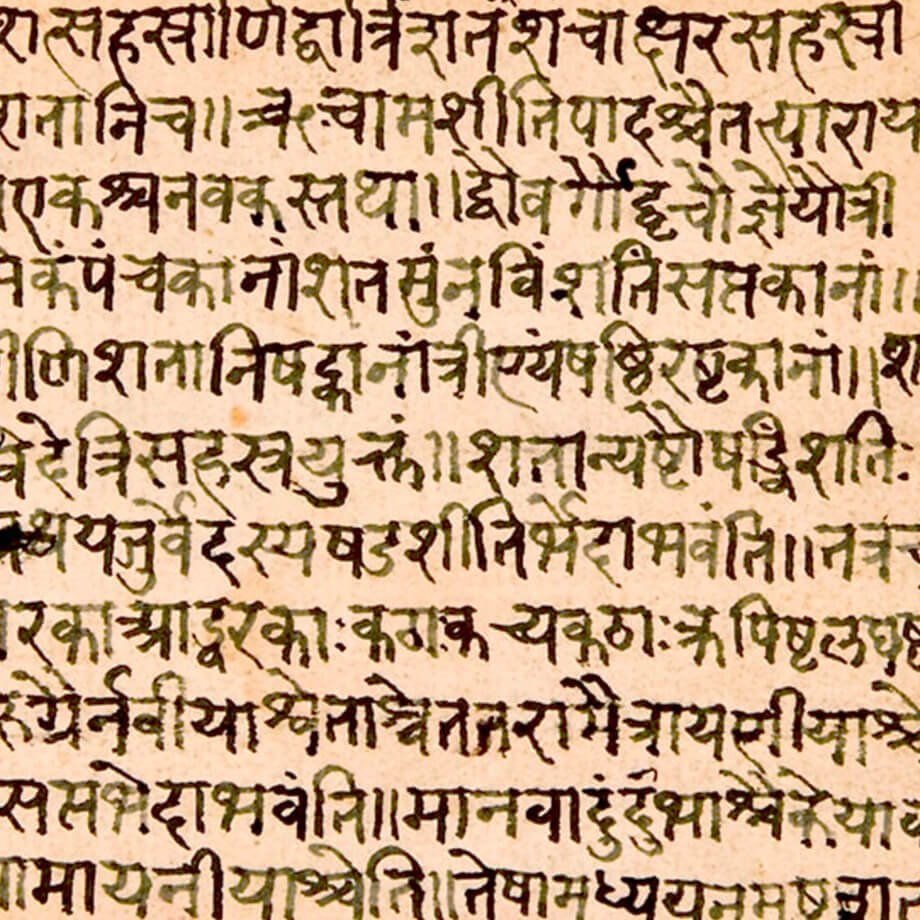 शत्सहस्राणिद्वात्रिंशतंशचाक्षरसहस्रा
शतानिच॥ऋचामशीतिपादश्चैतत्पाराय
एकश्चनवकस्तथा॥द्वौवर्गौद्वृचौज्ञेयौत्री
कंपंचकानांशतसुंनविंशतिसप्तकानां॥
णिशतानिषट्कानांत्रीण्यंषष्ठिरष्टकानां॥श
वेदेत्रिसहस्रयुक्तं॥शतान्यष्टौषड्विंशतिः
यजुर्वेदस्यषडशीतिर्भेदाभवंति॥तत्रच
रकाआहूरकाःकठाःकच्यकठाःकपिष्टलघष्ठ
वीयाश्वेताश्वेततरामैत्रायणीयाश्चे
सप्तभेदाभवंति॥मानवादुंदुभाश्चैकेया
मायनीयाश्चेति॥तेषामध्ययनमष्ट